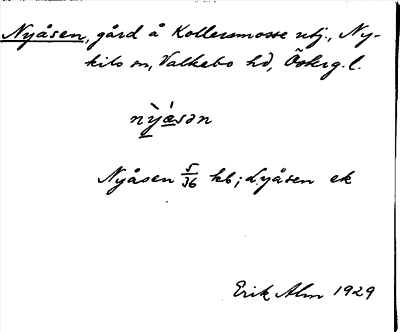 Nyåsen, gård å Kollersmosse utj., Ny-
kils sn, Valkebo hd, Östrg. l.
nỳásən
Nyåsen 5/36 kb; Lyåsen ek
Erik Alm 1929